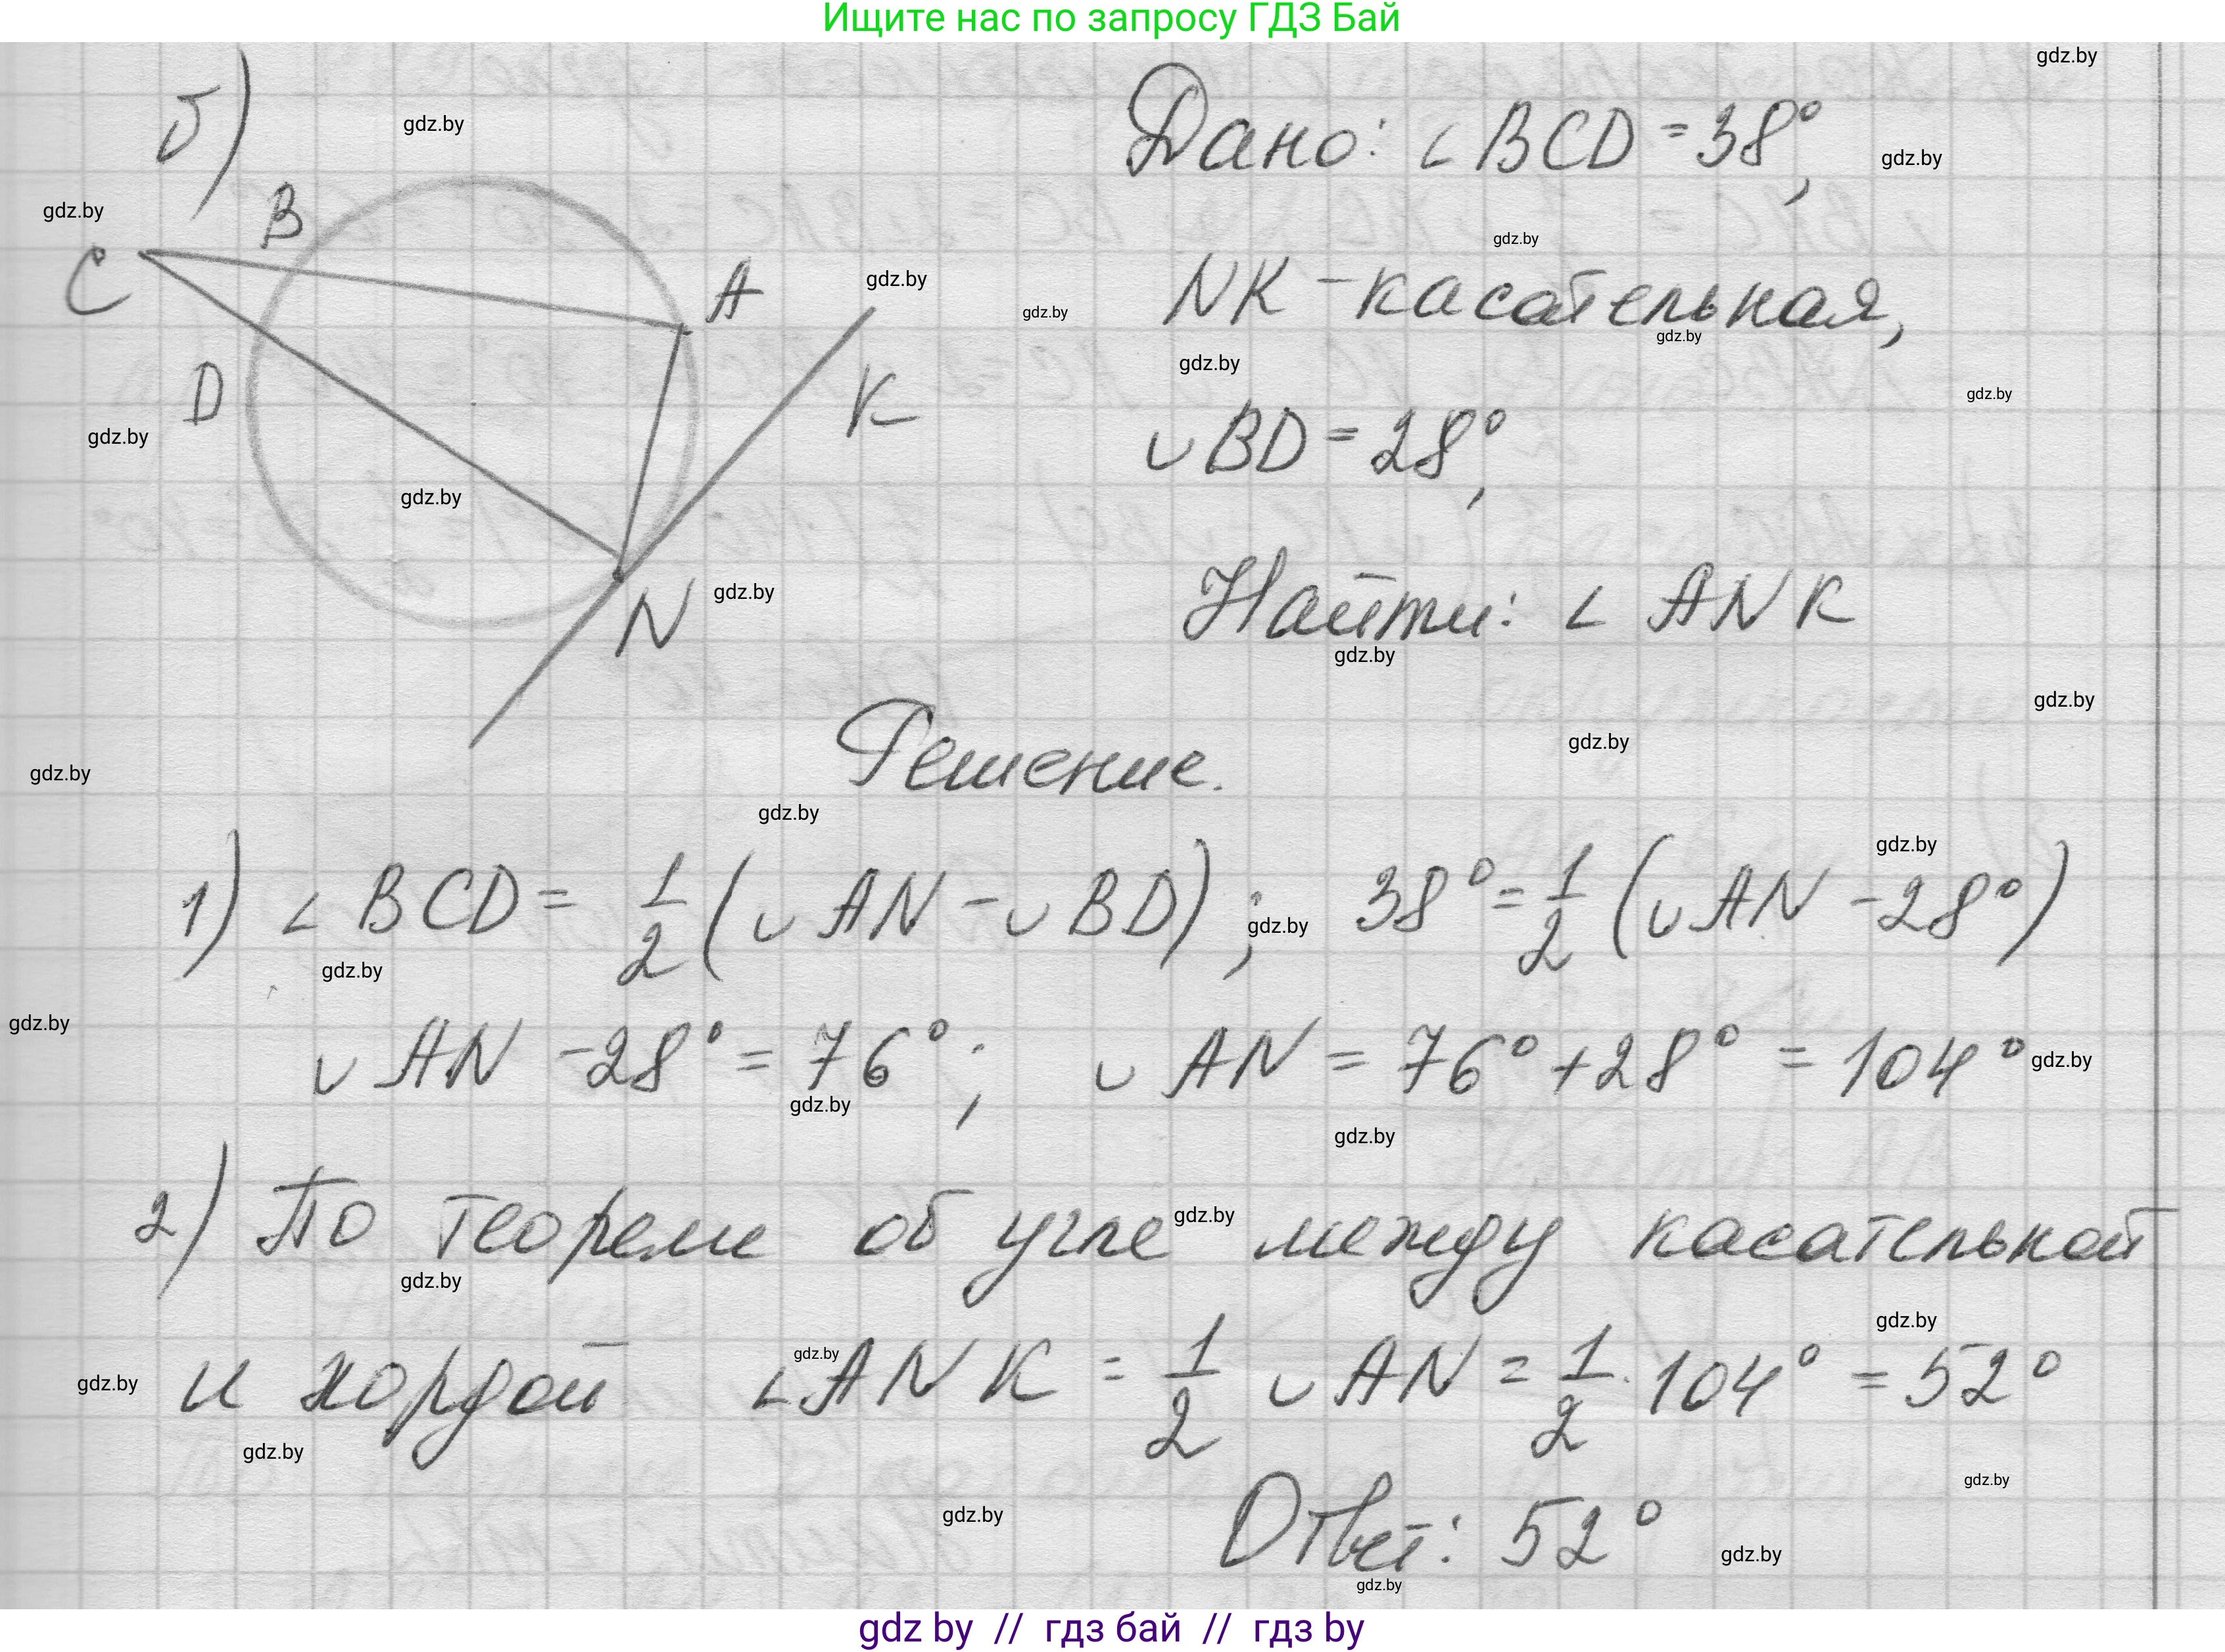 Ищите нас по запросу ГДЗ Бай
gdz.by
б)
gdz.by
Дано: ∠BCD = 38°,
gdz.by
gdz.by
B
C
gdz.by
A
gdz.by
NK - касательная,
gdz.by
gdz.by
gdz.by
D
K
gdz.by
gdz.by
∪BD = 28°,
gdz.by
N
gdz.by
Найти: ∠ ANK
gdz.by
gdz.by
Решение.
gdz.by
gdz.by
gdz.by
gdz.by
1) ∠BCD = 1/2 (∪AN - ∪BD); 38° = 1/2 (∪AN - 28°)
gdz.by
gdz.by
gdz.by
∪AN - 28° = 76°; ∪AN = 76° + 28° = 104°
gdz.by
gdz.by
gdz.by
2) По теореме об угле между касательной
gdz.by
gdz.by
gdz.by
и хордой ∠ANK = 1/2 ∪AN = 1/2 · 104° = 52°
gdz.by
gdz.by
gdz.by
gdz.by
gdz.by
Ответ: 52°
gdz.by
gdz.by
gdz by // гдз бай // гдз by